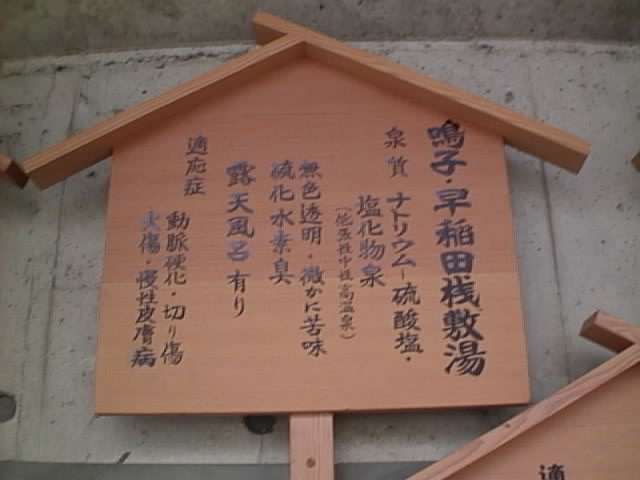 鳴子・早稲田桟敷湯
泉質 ナトリウム－硫酸塩・
塩化物泉
(低張性中性高温泉)
無色透明・微かに苦味
硫化水素臭
露天風呂有り
適応症
動脈硬化・切り傷
火傷・慢性皮膚病
適